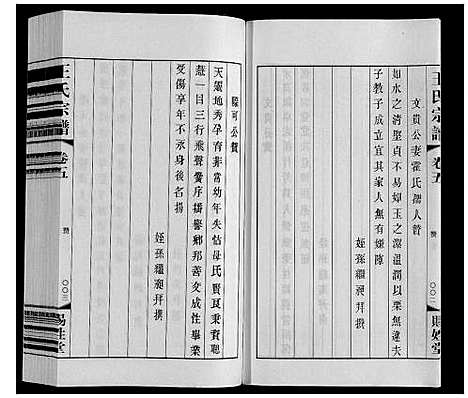 王氏宗譜
卷五
贊
〇〇二
賜姓堂
文貴公妻霍氏孺人贊
如水之清堅貞不易如玉之潔溫潤以栗無違夫
子教子成立宜其家人無有嫌隙
姪孫繼昶拜撰
陞可公贊
天羅地秀孕育非常幼年失怙母氏賢聰
慧一目三行飛聲黌序播譽鄉邦善交成性畢業
受傷享年不永身後名揚
姪孫繼昶拜撰
王氏宗譜
卷五
贊
〇〇三
賜姓堂